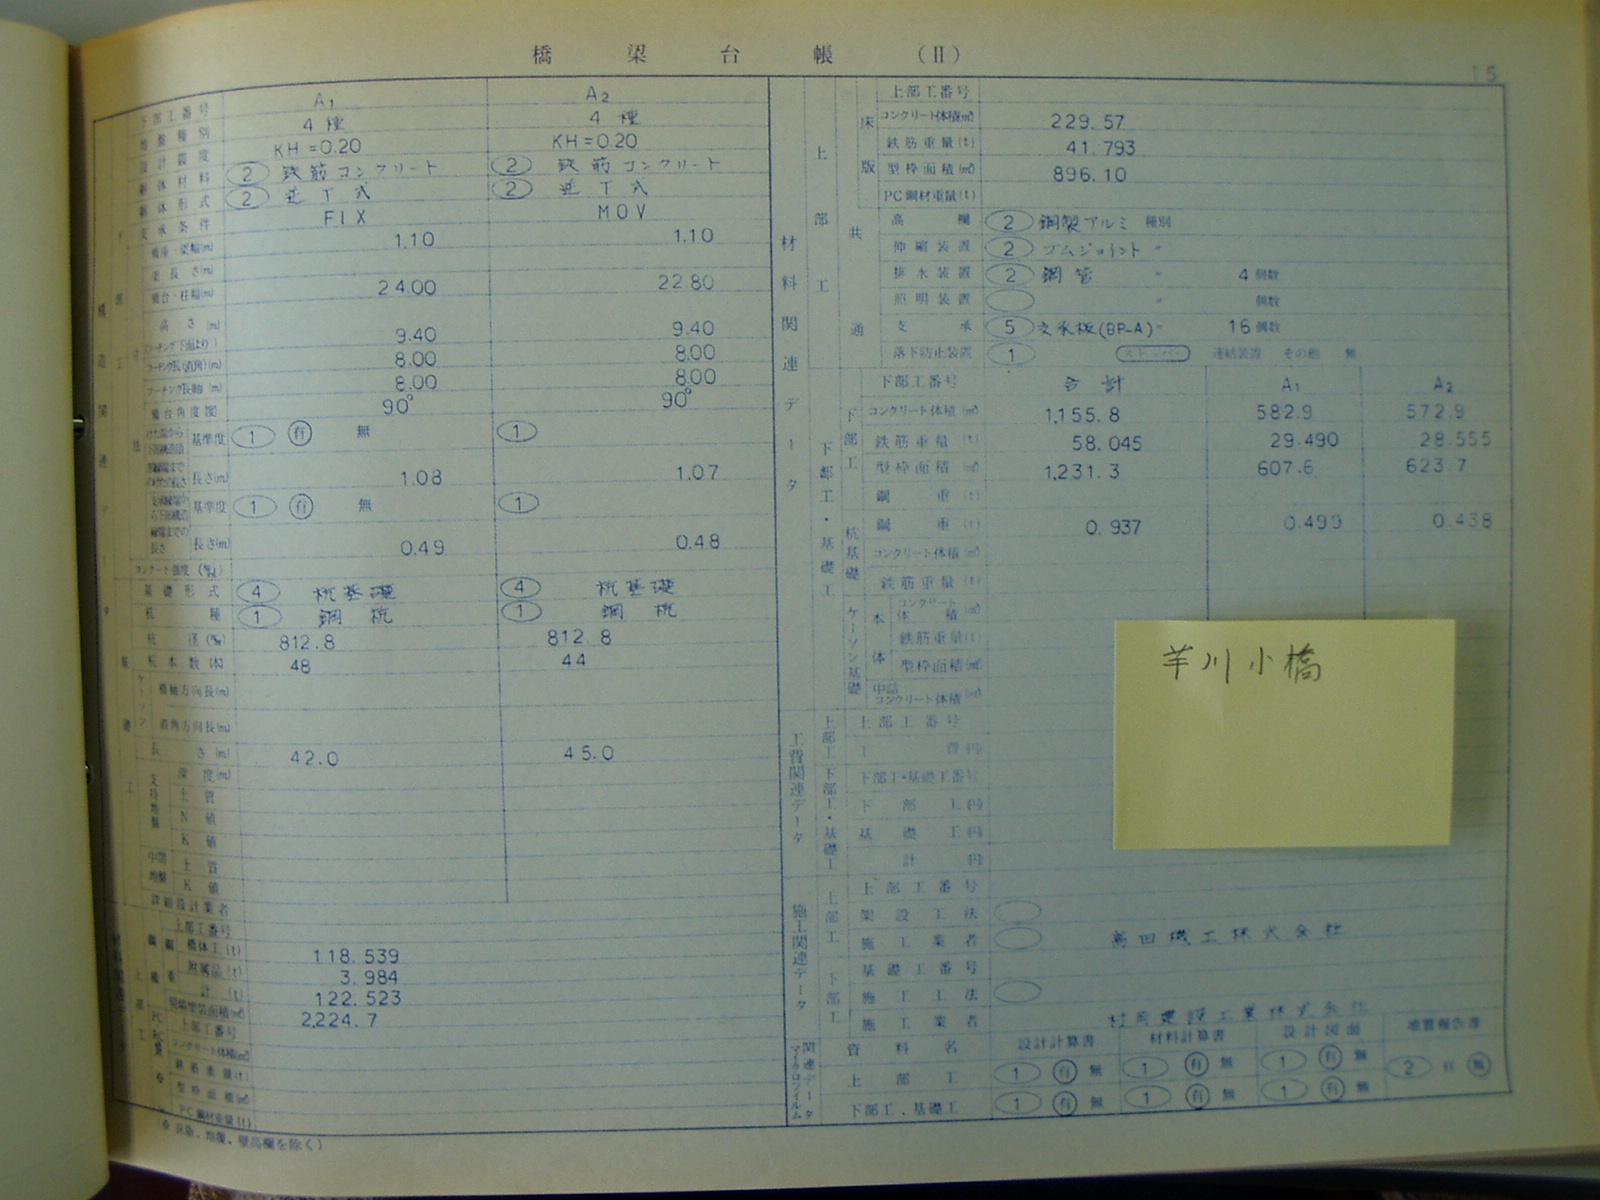 橋梁台帳(II)
15
下部工番号 A1 A2
地盤種別 4種 4種
設計震度 KH=0.20 KH=0.20
躯体材料 2 鉄筋コンクリート 2 鉄筋コンクリート
躯体形式 2 逆T式 2 逆T式
支承条件 FIX MOV
1.10 1.10
梁長さ(m)
橋台・柱幅(m) 24.00 22.80
高さ(m) 9.40 9.40
フーチング長(直角)(m) 8.00 8.00
フーチング長軸(m) 8.00 8.00
橋台角度(度) 90° 90°
基準度 1 有 無 1
長さ(m) 1.08 1.07
基準度 1 有 無 1
長さ(m) 0.49 0.48
基礎形式 4 杭基礎 4 杭基礎
杭種 1 鋼杭 1 鋼杭
杭径(mm) 812.8 812.8
杭本数(本) 48 44
ケーソン
橋軸方向長(m)
直角方向長(m)
長さ(m) 42.0 45.0
支持地盤
深度(m)
土質
N値
K値
中間地盤
土質
K値
詳細設計業者
上部工番号
橋体工(t) 118.539
附属品(t) 3.984
計(t) 122.523
現場塗装面積(㎡) 2,224.7
上部工番号
コンクリート体積(㎥)
鉄筋重量(t)
型枠面積(㎡)
PC鋼材重量(t)
(※床版、地覆、壁高欄を除く)
材料関連データ
上部工
床版
上部工番号
コンクリート体積(㎥) 229.57
鉄筋重量(t) 41.793
型枠面積(㎡) 896.10
PC鋼材重量(t)
共通
高欄 2 鋼製アルミ 種別
伸縮装置 2 ゴムジョイント 〃
排水装置 2 鋼管 〃 4 個数
照明装置 〃 個数
支承 5 支承板(BP-A) 〃 16 個数
落下防止装置 1 ストッパー 連結装置 その他 無
下部工・基礎工
下部工
下部工番号 合計 A1 A2
コンクリート体積(㎥) 1,155.8 582.9 572.9
鉄筋重量(t) 58.045 29.490 28.555
型枠面積(㎡) 1,231.3 607.6 623.7
鋼重(t)
杭基礎
鋼重(t) 0.937 0.499 0.438
コンクリート体積(㎥)
鉄筋重量(t)
ケーソン基礎
本体
コンクリート体積(㎥)
鉄筋重量(t)
型枠面積(㎡)
中詰コンクリート体積(㎥)
芋川小橋
工費関連データ
上部工
上部工番号
工費(円)
下部工・基礎工
下部工・基礎工番号
下部工(円)
基礎工(円)
計(円)
施工関連データ
上部工
上部工番号
架設工法
施工業者 高田機工株式会社
下部工
基礎工番号
施工工法
施工業者 村岡建設工業株式会社
関連データマイクロフィルム
資料名 設計計算書 材料計算書 設計図面 地質報告書
上部工 1 有 無 1 有 無 1 有 無 2 有 無
下部工.基礎工 1 有 無 1 有 無 1 有 無